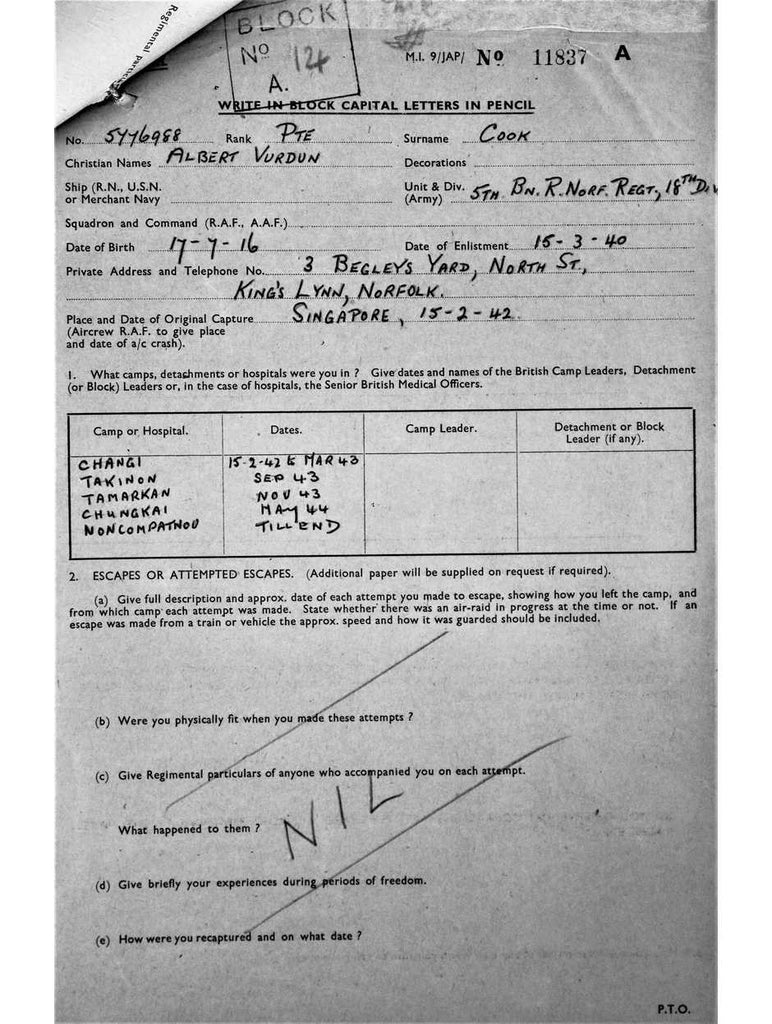 Regimental partic
BLOCK
No 124
A.
M.I. 9/JAP/ No 11837 A
WRITE IN BLOCK CAPITAL LETTERS IN PENCIL
No. 5776988 Rank PTE Surname COOK
Christian Names ALBERT VURDUN Decorations
Ship (R.N., U.S.N. or Merchant Navy
Unit & Div. (Army) 5TH BN. R. NORF. REGT, 18TH DIV
Squadron and Command (R.A.F., A.A.F.)
Date of Birth 17-7-16 Date of Enlistment 15-3-40
Private Address and Telephone No. 3 BEGLEY'S YARD, NORTH ST.,
KING'S LYNN, NORFOLK.
Place and Date of Original Capture SINGAPORE, 15-2-42
(Aircrew R.A.F. to give place
and date of a/c crash).
1. What camps, detachments or hospitals were you in ? Give dates and names of the British Camp Leaders, Detachment
(or Block) Leaders or, in the case of hospitals, the Senior British Medical Officers.
Camp or Hospital. Dates. Camp Leader. Detachment or Block Leader (if any).
CHANGI 15-2-42 to MAR 43
TAKINON SEP 43
TAMARKAN NOV 43
CHUNGKAI MAY 44
NONCOMPATHOU TILL END
2. ESCAPES OR ATTEMPTED ESCAPES. (Additional paper will be supplied on request if required).
(a) Give full description and approx. date of each attempt you made to escape, showing how you left the camp, and
from which camp each attempt was made. State whether there was an air-raid in progress at the time or not. If an
escape was made from a train or vehicle the approx. speed and how it was guarded should be included.
(b) Were you physically fit when you made these attempts ?
(c) Give Regimental particulars of anyone who accompanied you on each attempt.
What happened to them ?
NIL
(d) Give briefly your experiences during periods of freedom.
(e) How were you recaptured and on what date ?
P.T.O.